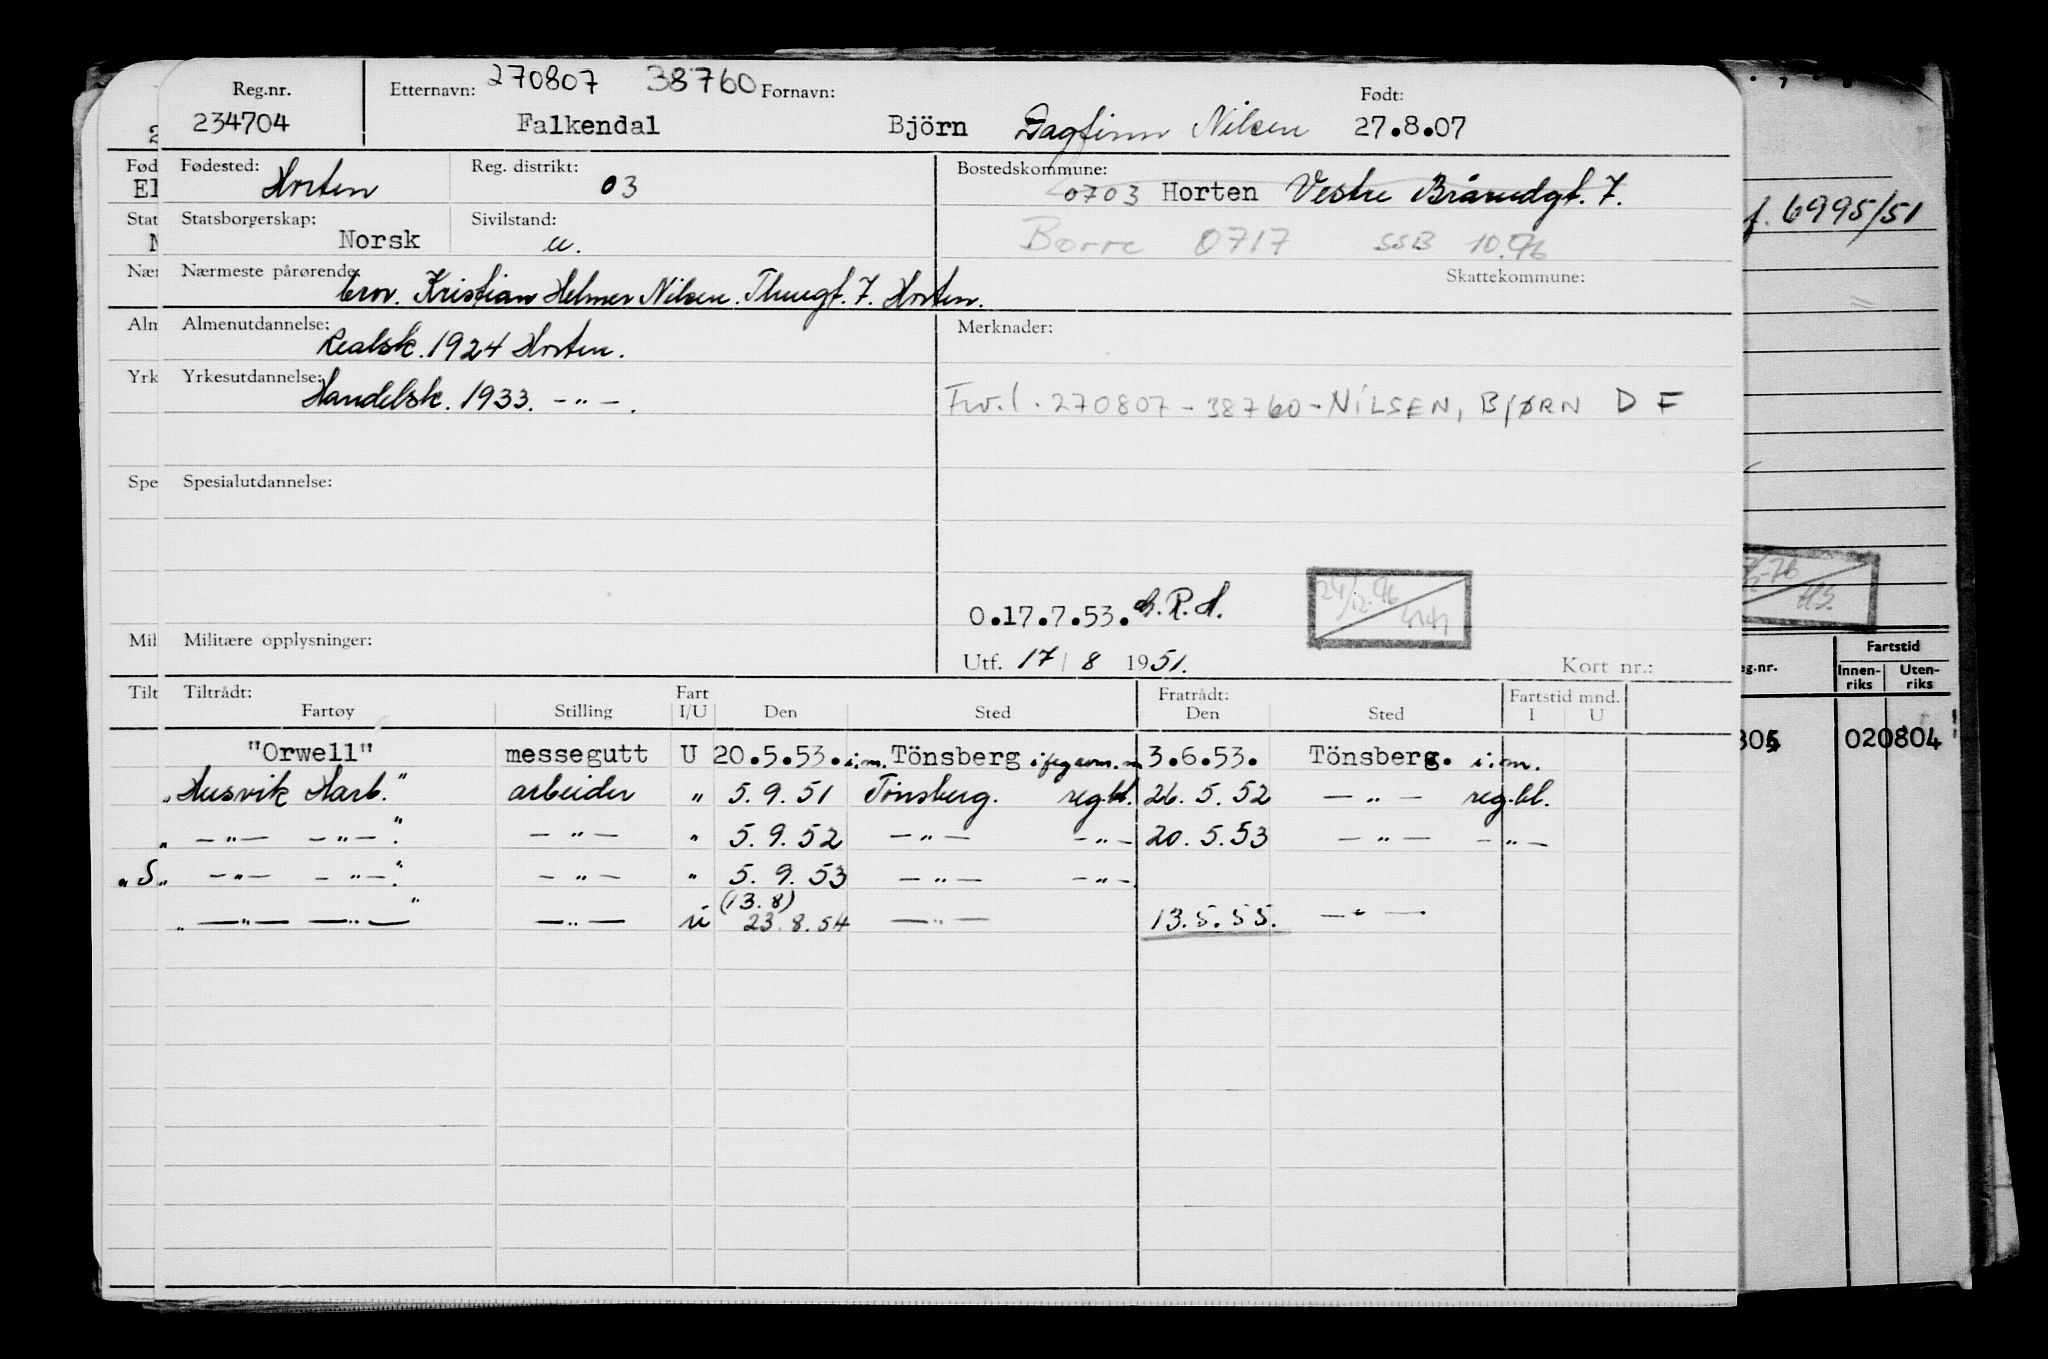 Reg.nr. Etternavn: 270807 38760 Fornavn: Født:
234704 Falkendal Björn Dagfinn Nilsen 27.8.07
Fødested: Horten Reg. distrikt: 03 Bostedskommune: 0703 Horten Vestre Bråendgt. 7.
Statsborgerskap: Norsk Sivilstand: u. Borre 0717 SSB 10.96
Nærmeste pårørende: bror. Kristian Helmer Nilsen. 7. Horten. Skattekommune:
Almenutdannelse: Realsk. 1924 Horten. Merknader:
Yrkesutdannelse: Handelsk. 1933. —"— .
270807-38760-NILSEN, BJØRN D F
Spesialutdannelse:
O.17.7.53.
Militære opplysninger: Utf. 17/8 1951. Kort nr.:
Tiltrådt: Fart Fratrådt: Fartstid mnd.
Fartøy Stilling I/U Den Sted Den Sted I U
"Orwell" messegutt U 20.5.53. i.m. Tönsberg 3.6.53. Tönsberg. i.m.
"Husvik Harb." arbeider " 5.9.51 Tönsberg. reg.bl. 26.5.52 —"— reg.bl.
" —"— —"—." —"— " 5.9.52 —"— —"— 20.5.53 —"— —"—
"S" —"— —"—." —"— " 5.9.53 —"— —"—
(13.8)
" —"— —"— " —"— u 23.8.54 —"— 13.5.55. —"—
f. 6995/51
Fartstid
eg.nr. Innen-riks Uten-riks
305 020804